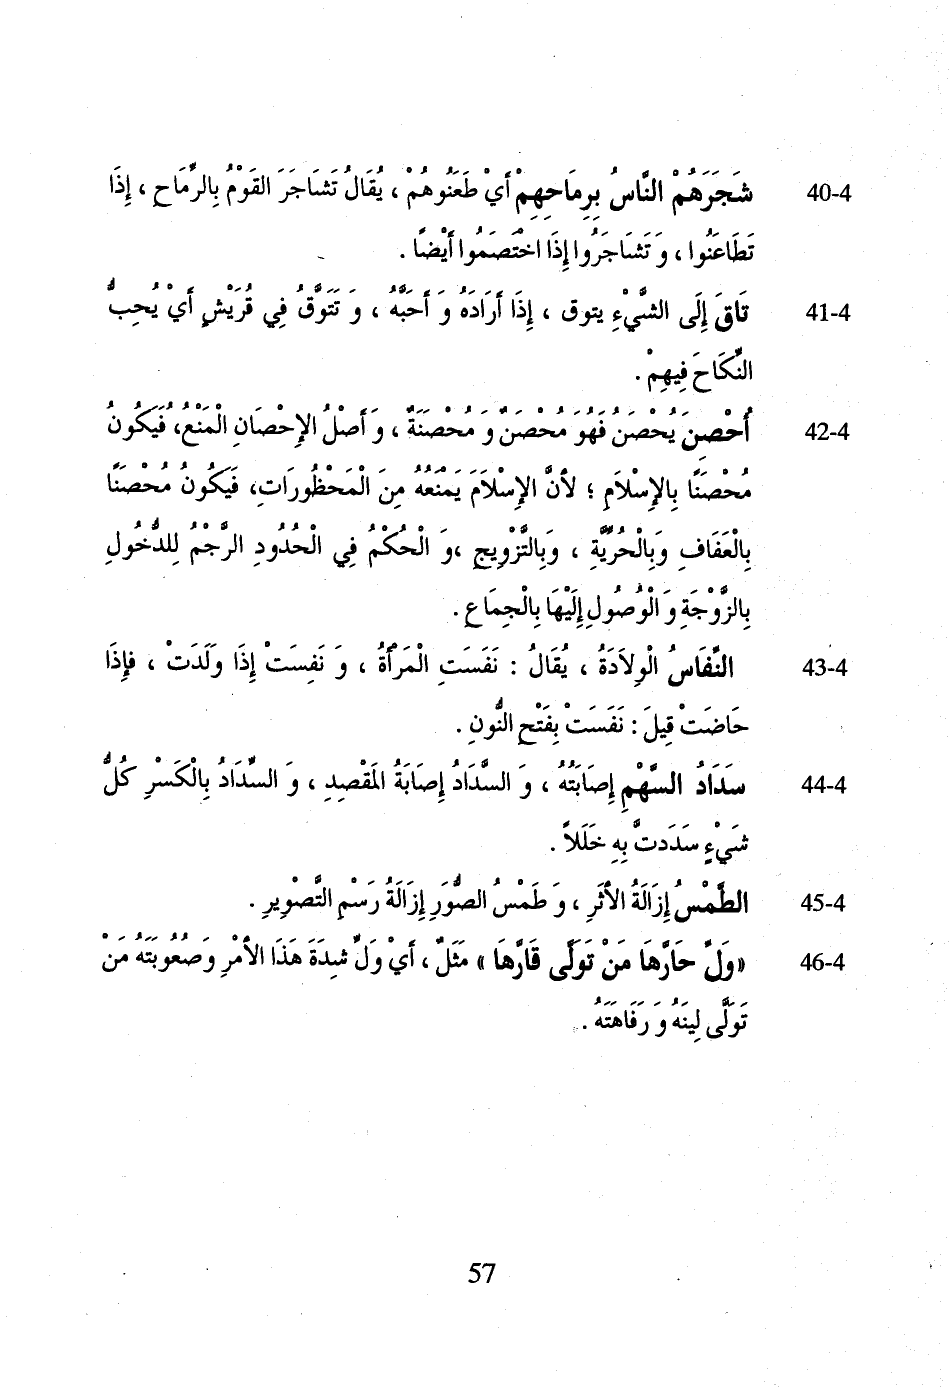 40-4 شَجَرَهُمْ النَّاسُ بِرِماَحِهِمْ أَيْ طَعَنُوهُمْ ، يُقَالُ تَشَاجَرَ القَوْمُ بِالرِّمَاحِ ، إِذَا
تَطَاعَنُوا ، وَ تَشَاجَرُوا إِذَا اخْتَصَمُوا أَيْضًا .
41-4 تَاقَ إِلَى الشَّيْءِ يتوق ، إِذَا أَرَادَهُ وَ أَحَبَّهُ ، وَ تَتَوَّقُ فِي قُرَيْشٍ أَيْ يُحِبُّ
النِّكَاحَ فِيهِمْ .
42-4 أُحْصِنَ يُحْصَنُ فَهُوَ مُحْصَنٌ وَ مُحْصَنَةٌ ، وَ أَصْلُ الإِحْصَانِ الْمَنْعُ، فَيَكُونُ
مُحْصَنًا بِالإِسْلاَمِ ؛ لأنَّ الإِسْلاَمَ يَمْنَعُهُ مِنَ الْمَحْظُورَاتِ، فَيَكُونُ مُحْصَنًا
بِالْعَفَافِ وَبِالْحُرِّيَّةِ ، وَبِالتَّزْوِيجِ ،وَ الْحُكْمُ فِي الْحُدُودِ الرَّجْمُ لِلدُّخُولِ
بِالزَّوْجَةِ وَ الْوُصُولِ إِلَيْهَا بِالْجِمَاعِ .
43-4 النِّفَاسُ الْوِلاَدَةُ ، يُقَالُ : نَفَسَت الْمَرْأَةُ ، وَ نَفِسَتْ إِذَا وَلَدَتْ ، فإِذَا
حَاضَتْ قِيلَ : نَفَسَتْ بِفَتْحِ النُّونِ .
44-4 سَدَادُ السَّهْمِ إِصَابَتُهُ ، وَ السَّدَادُ إِصَابَةُ المَقْصِدِ ، وَ السِّدَادُ بِالْكَسْرِ كُلُّ
شَيْءٍ سَدَدتَّ بِهِ خَلَلاً .
45-4 الطَّمْسُ إِزَالَةُ الأَثَرِ ، وَ طَمْسُ الصُّوَرِ إِزَالَةُ رَسْمِ التَّصْوِيرِ .
46-4 «وَلِّ حَارَّهَا مَنْ تَوَلَّى قَارَّهَا » مَثَلٌ ، أَيْ وَلِّ شِدَةَ هَذَا الأَمْرِ وَصُعُوبَتَهُ مَنْ
تَوَلَّى لِينَهُ وَ رَفَاهَتَهُ .
57